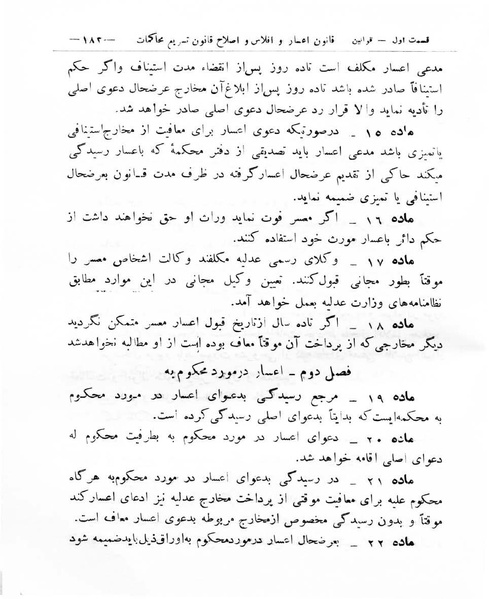 قسمت اول – قوانین قانون اعسار و افلاس و اصلاح قانون تسریع محاکمات –۱۸۳–
مدعی اعسار مکلف است تاده روز پس‌از انقضاء مدت استیناف واگر حکم
استینافاً صادر شده باشد تاده روز پس‌از ابلاغ‌آن مخارج عرضحال دعوی اصلی
را تأدیه نماید والا قرار رد عرضحال دعوی اصلی صادر خواهد شد.
ماده ۱۵ – درصورتیکه دعوی اعسار برای معافیت از مخارج‌استینافی
یاتمیزی باشد مدعی اعسار باید تصدیقی از دفتر محکمهٔ که باعسار رسیدگی
میکند حاکی از تقدیم عرضحال اعسارگرفته در ظرف مدت قانون بعرضحال
استینافی یا تمیزی ضمیمه نماید.
ماده ۱۶ – اگر معسر فوت نماید وراث او حق نخواهند داشت از
حکم دائر باعسار مورث خود استفاده کنند.
ماده ۱۷ – وکلای رسمی عدلیه مکلفند وکالت اشخاص معسر را
موقتاً بطور مجانی قبول‌کنند. تعیین وکیل مجانی در این موارد مطابق
نظامنامه‌های وزارت عدلیه بعمل خواهد آمد.
ماده ۱۸ – اگر تاده سال ازتاریخ قبول اعسار معسر متمکن نگردید
دیگر مخارجی‌که از پرداخت آن موقتاً معاف بوده است از او مطالبه نخواهدشد
فصل دوم – اعسار درمورد محکوم‌به
ماده ۱۹ – مرجع رسیدگی بدعوای اعسار در مورد محکوم
به محکمه‌ایست‌که بدایتاً بدعوای اصلی رسیدگی‌کرده است.
ماده ۲۰ – دعوای اعسار در مورد محکوم به بطرفیت محکوم له
دعوای اصلی اقامه خواهد شد.
ماده ۲۱ – در رسیدگی بدعوای اعسار در مورد محکوم‌به هرگاه
محکوم علیه برای معافیت موقتی از پرداخت مخارج عدلیه نیز ادعای اعسارکند
موقتاً و بدون رسیدگی مخصوص ازمخارج مربوطه بدعوی اعسار معاف است.
ماده ۲۲ – بعرضحال اعسار درموردمحکوم به‌اوراق‌ذیل‌بایدضمیمه شود